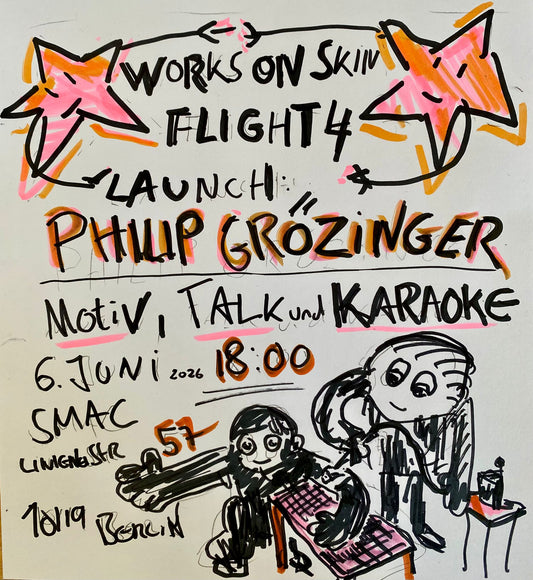 WORKS ON SKIN
FLIGHT 4
LAUNCH:
PHILIP GRÖZINGER
MOTIV, TALK und KARAOKE
6. JUNI 2026 18:00
SMAC
LINIENSTR 57
10119 BERLIN